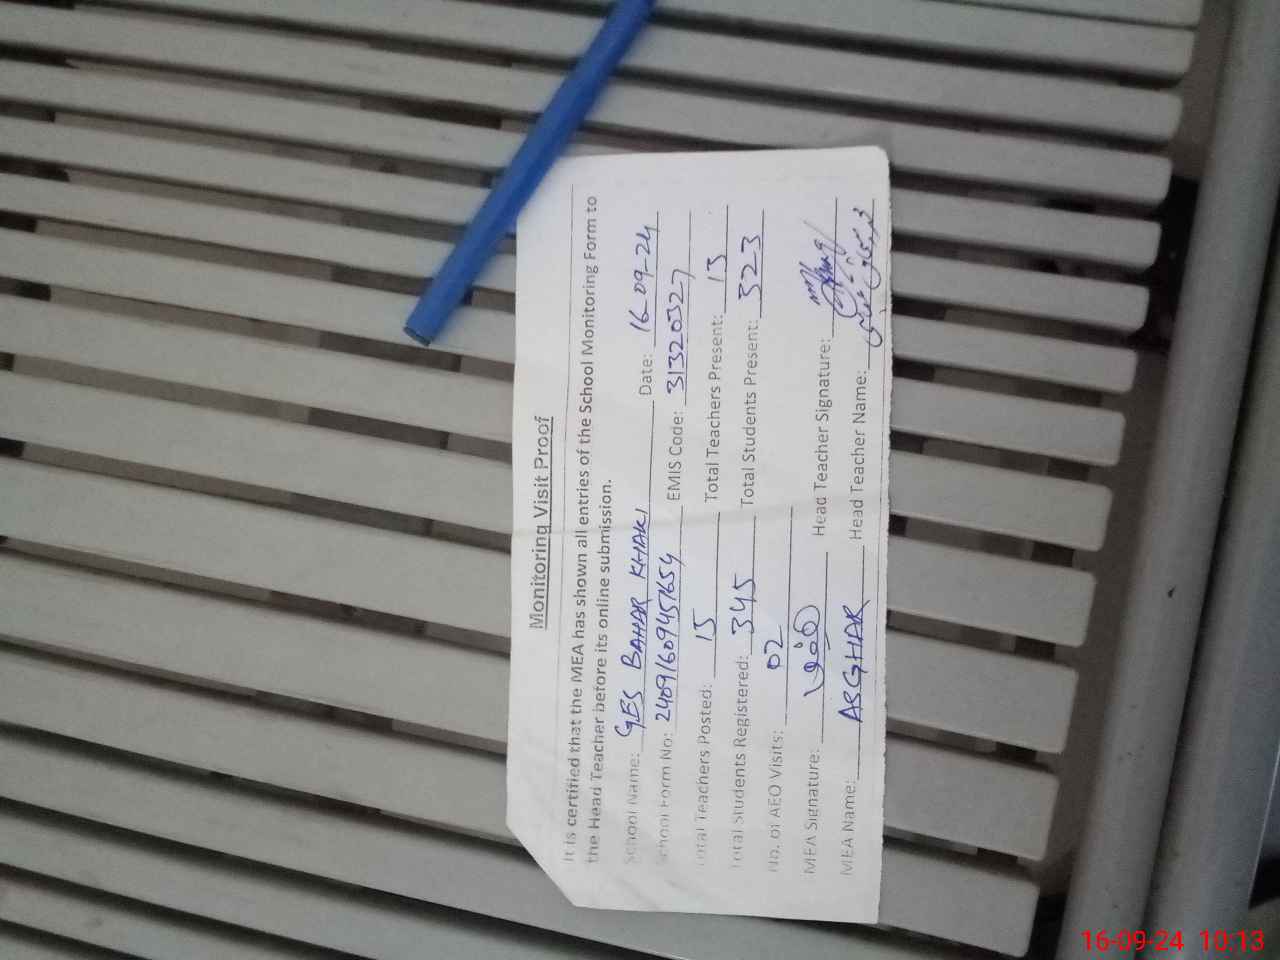 Monitoring Visit Proof
It is certified that the MEA has shown all entries of the School Monitoring Form to
the Head Teacher before its online submission.
School Name: GES BAHAR KHAKI Date: 16-09-24
School Form No: 24091609451654 EMIS Code: 31320327
Total Teachers Posted: 15 Total Teachers Present: 13
Total Students Registered: 345 Total Students Present: 323
No. of AEO Visits: 02
MEA Signature: Head Teacher Signature:
MEA Name: ASGHAR Head Teacher Name:
16-09-24 10:13